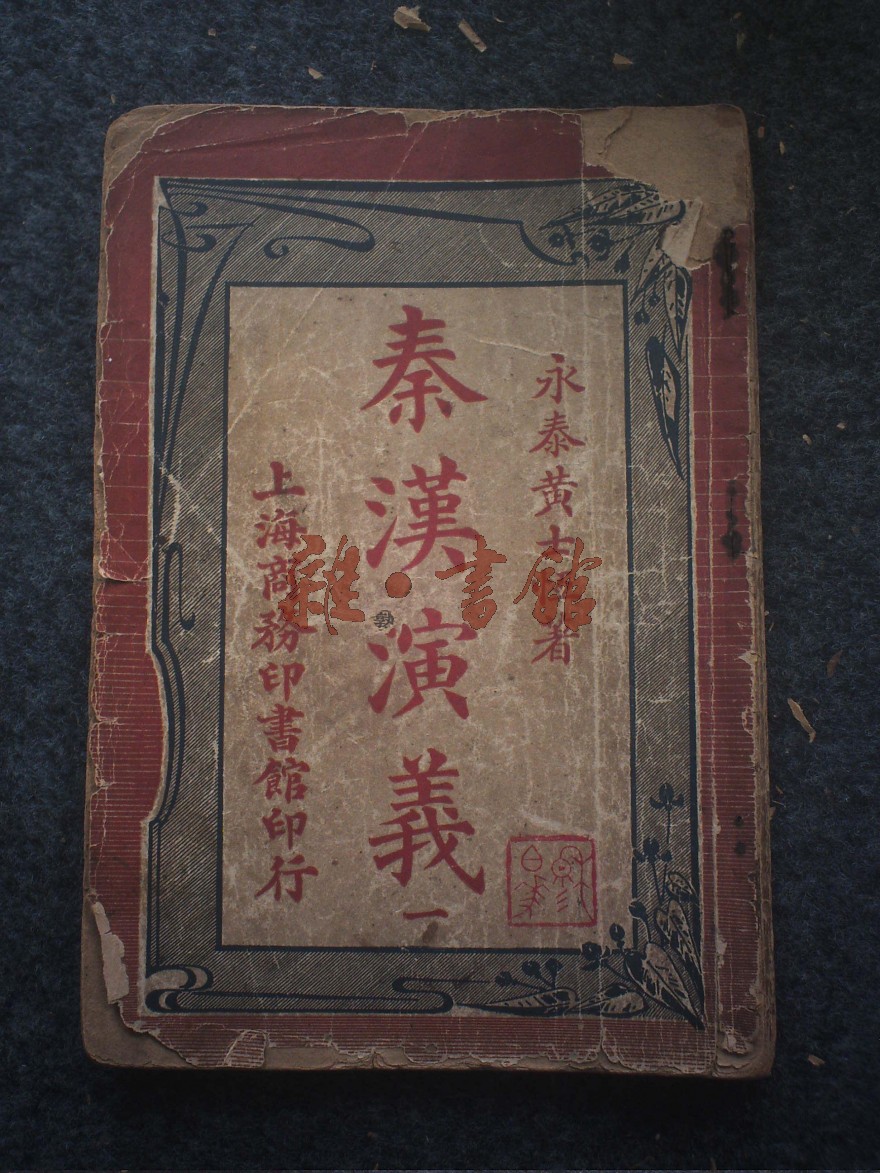 永泰黃士恆著
秦漢演義
一
上海商務印書館印行
雜·書館